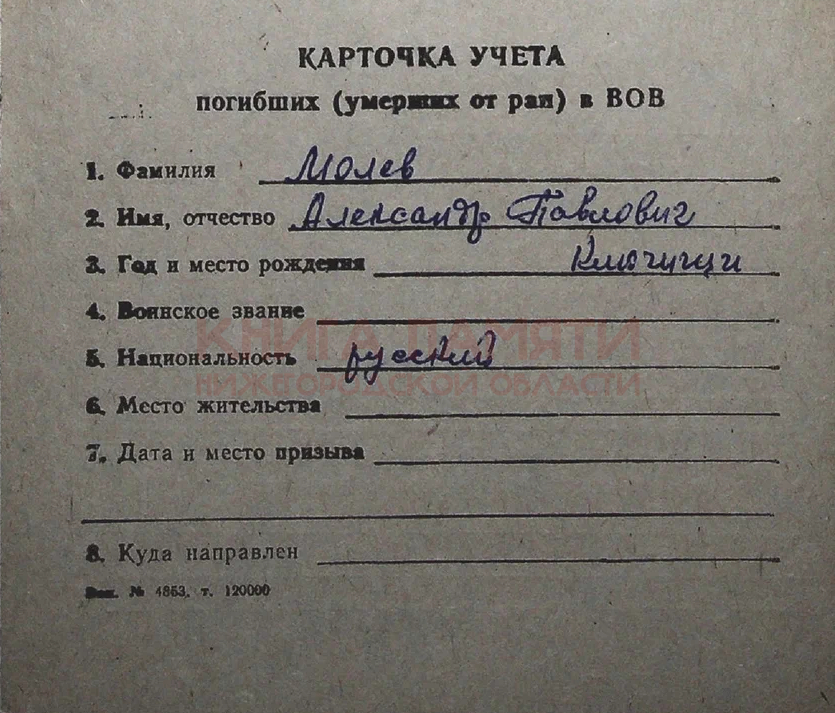 КАРТОЧКА УЧЕТА
погибших (умерших от ран) в ВОВ
1. Фамилия Молев
2. Имя, отчество Александр Павлович
3. Год и место рождения Ключищи
4. Воинское звание
КНИГА ПАМЯТИ
5. Национальность русский
НИЖЕГОРОДСКОЙ ОБЛАСТИ
6. Место жительства
7. Дата и место призыва
8. Куда направлен
Зак. № 4853. т. 120000